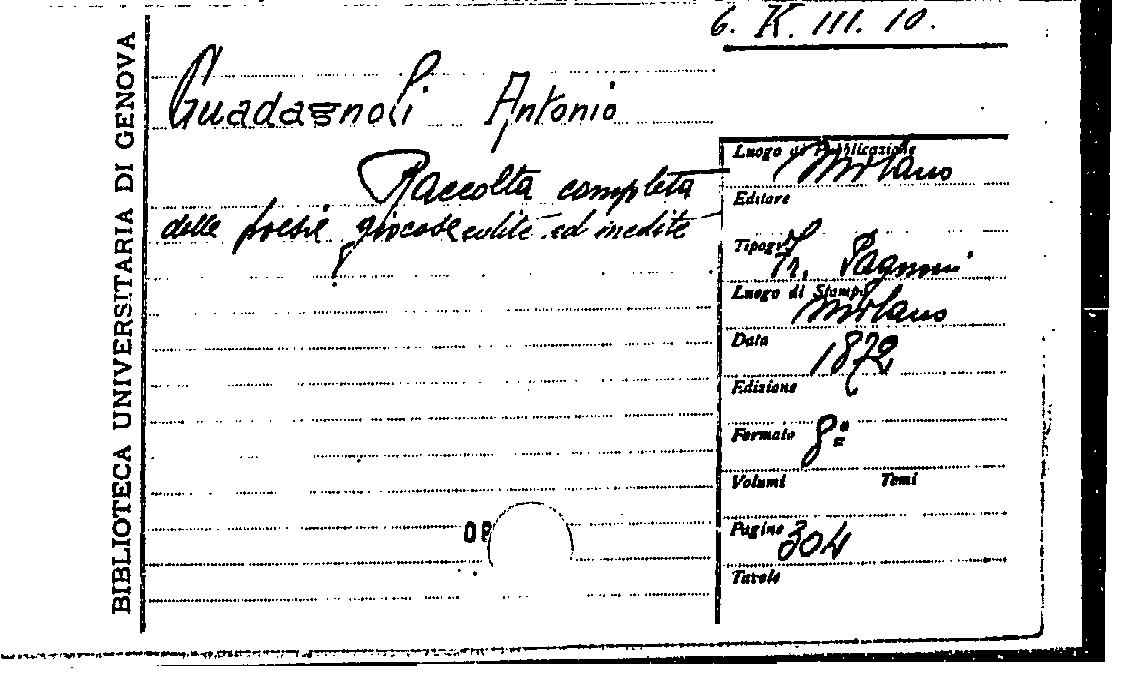 6. K. III. 10.
BIBLIOTECA UNIVERSITARIA DI GENOVA
Guadagnoli Antonio
Raccolta completa
delle poesie giocose edite ed inedite
Luogo di Pubblicazione Milano
Editore
Tipogr. Fr. Pagnoni
Luogo di Stampa Milano
Data 1872
Edizione
Formato 8º
Volumi Tomi
Pagine 304
Tavole